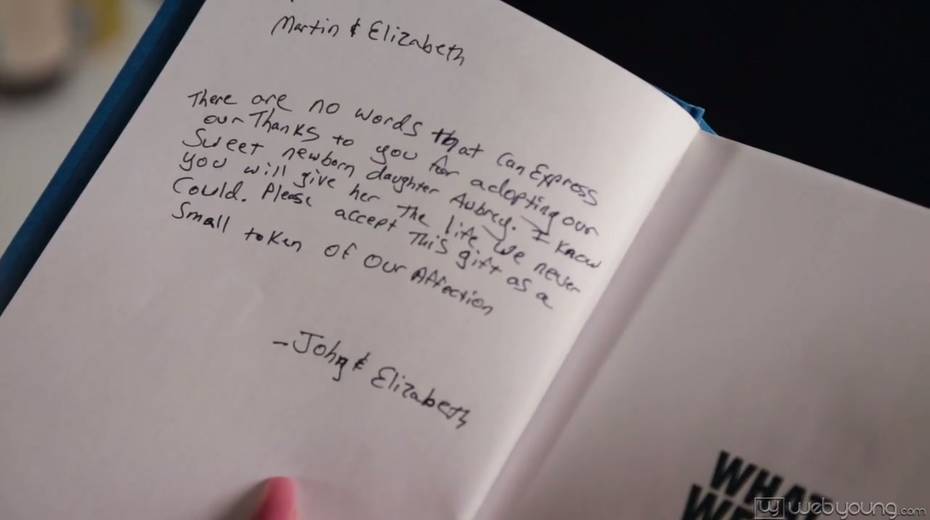 Martin & Elizabeth
There are no words that can Express
our Thanks to you for adopting our
Sweet newborn daughter Aubrey. I know
you will give her the life we never
Could. Please accept This gift as a
Small token of our Affection
- John & Elizabeth
WHAT
WE
webyoung.com